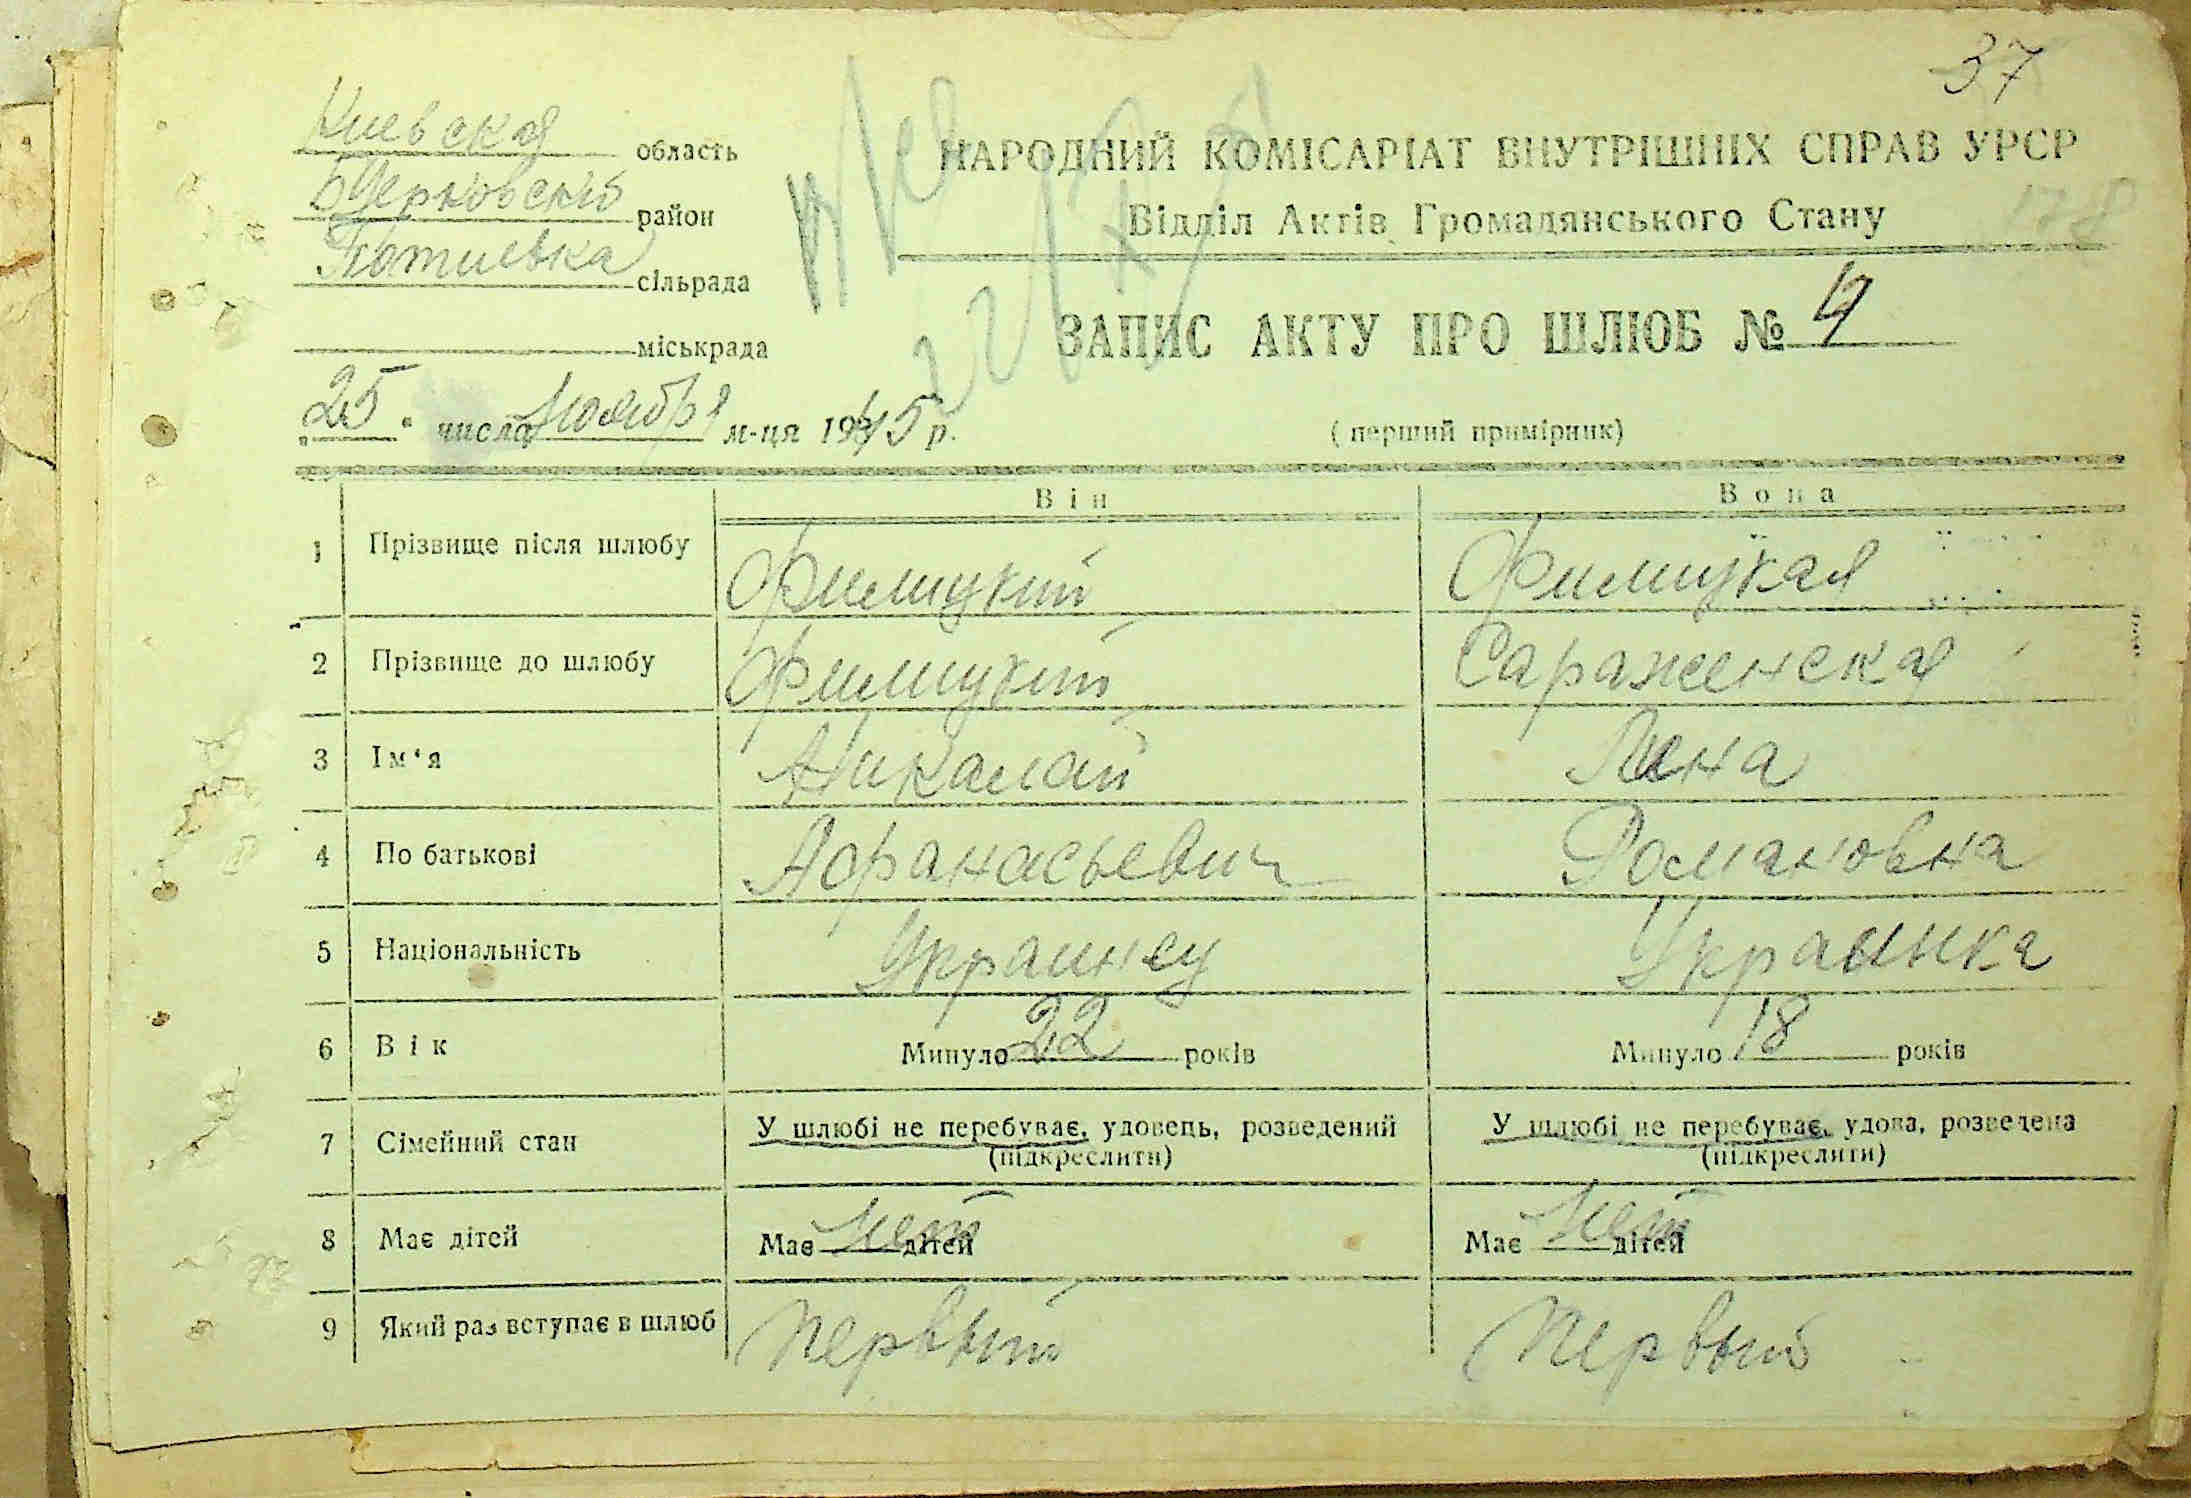 37
Киевская область
БЦерковский район
Потиевка сільрада
міськрада
НАРОДНИЙ КОМІСАРІАТ ВНУТРІШНІХ СПРАВ УРСР
Відділ Актів Громадянського Стану
178
ЗАПИС АКТУ ПРО ШЛЮБ № 4
„25" числа Ноября м-ця 1945 р.
(перший примірник)
Він Вона
1 Прізвище після шлюбу Филицкий Филицкая
2 Прізвище до шлюбу Филицкий Сараженская
3 Ім'я Николай
4 По батькові Афанасьевич Романовна
5 Національність Украинец Украинка
6 Вік Минуло 22 років Минуло 18 років
7 Сімейний стан У шлюбі не перебуває, удовець, розведений У шлюбі не перебуває, удова, розведена
(підкреслити) (підкреслити)
8 Має дітей Має нет дітей Має нет дітей
9 Який раз вступає в шлюб первый первый